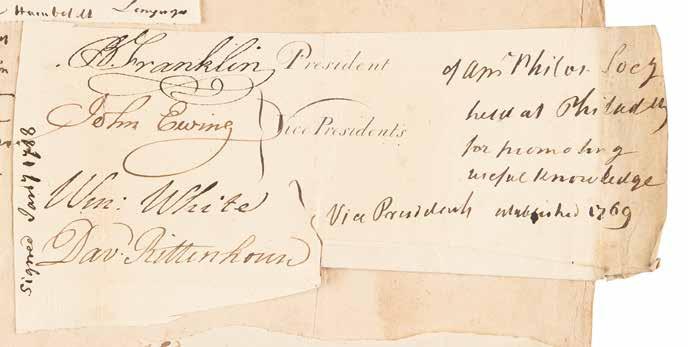 Humboldt
B. Franklin President of Amn Philos Socy
John Ewing Vice Presidents held at Philad
for promoting
useful Knowledge
Wm: White
Vice Presidents established 1769
Dav. Rittenhouse
signed July 1788